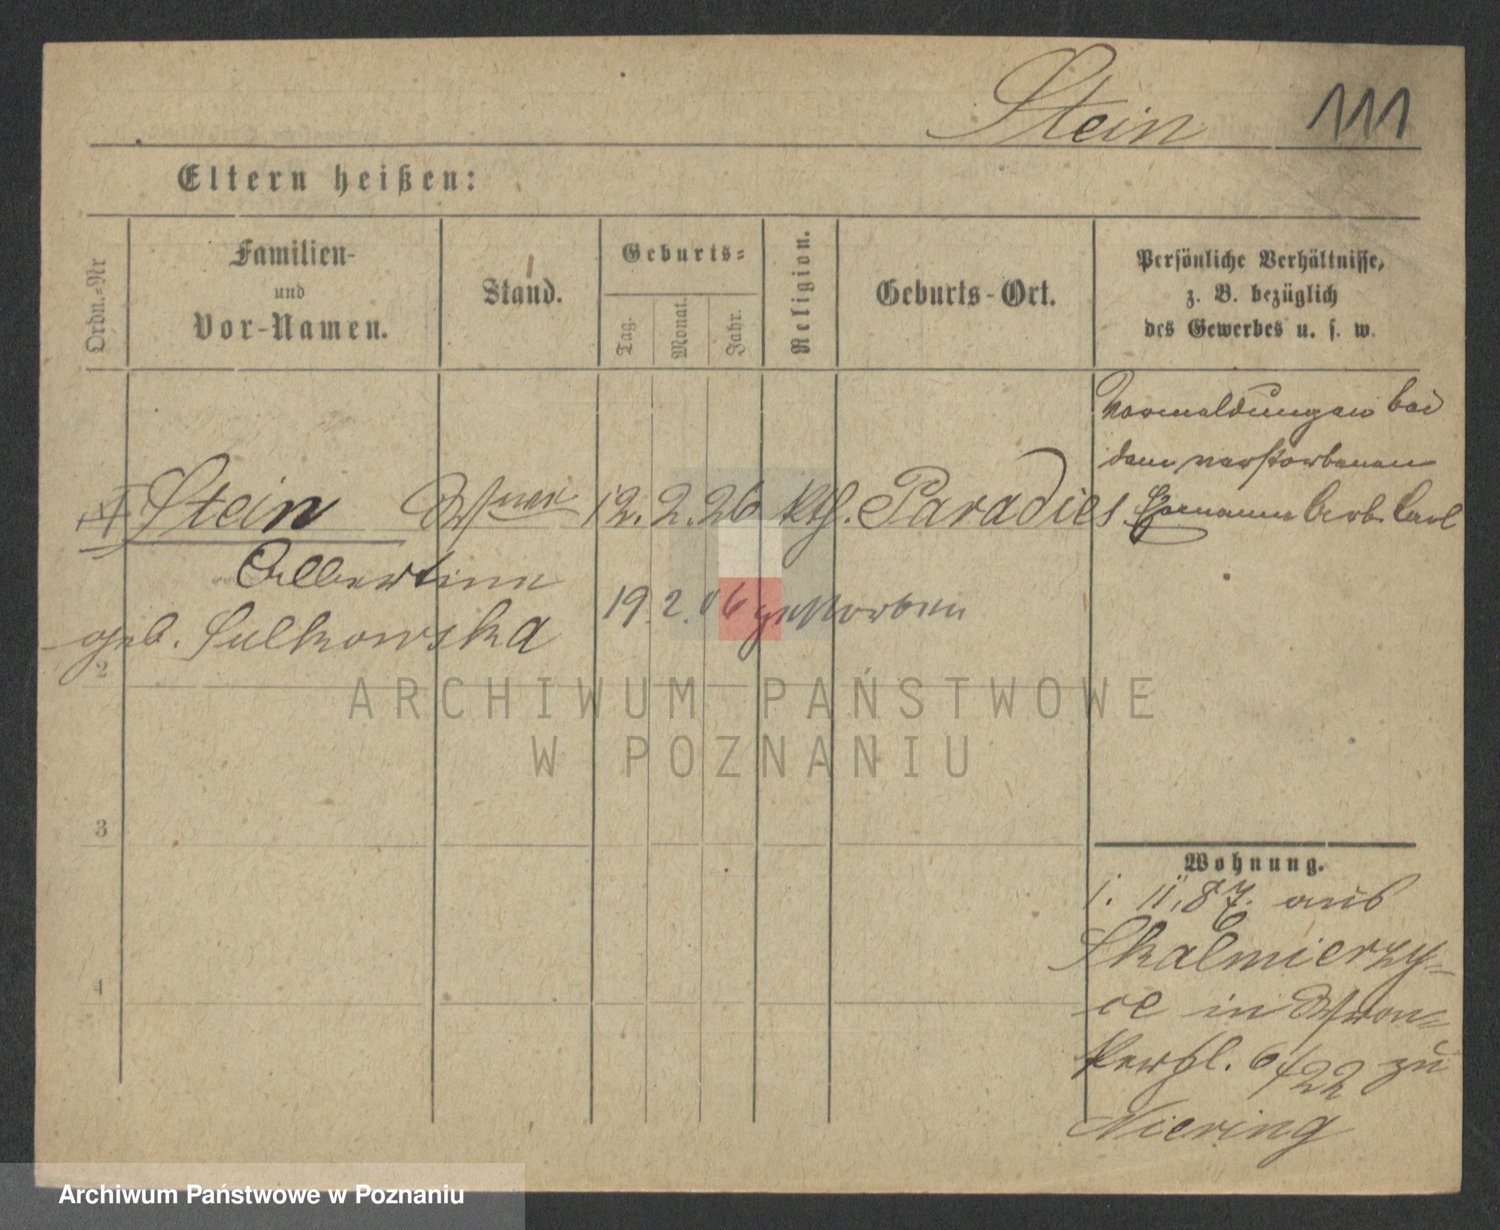 Stein 111
Eltern heißen:
Ordn.-Nr
Familien-
und
Vor-Namen.
Stand.
Geburts-
Tag.
Monat.
Jahr.
Religion.
Geburts-Ort.
Persönliche Verhältnisse,
z. B. bezüglich
des Gewerbes u. s. w.
Vormeldungen bei
dem verstorbenen
Stein 12. 2. 26 kth. Paradies Carl
Albertine
19. 2. 06 gestorben
geb. Sulkowska
2
3
4
Wohnung.
1. 11. 87. aus
Skalmierzy-
ce in Wron-
kerpl. 6/22 zu
Niering
ARCHIWUM PAŃSTWOWE
W POZNANIU
Archiwum Państwowe w Poznaniu